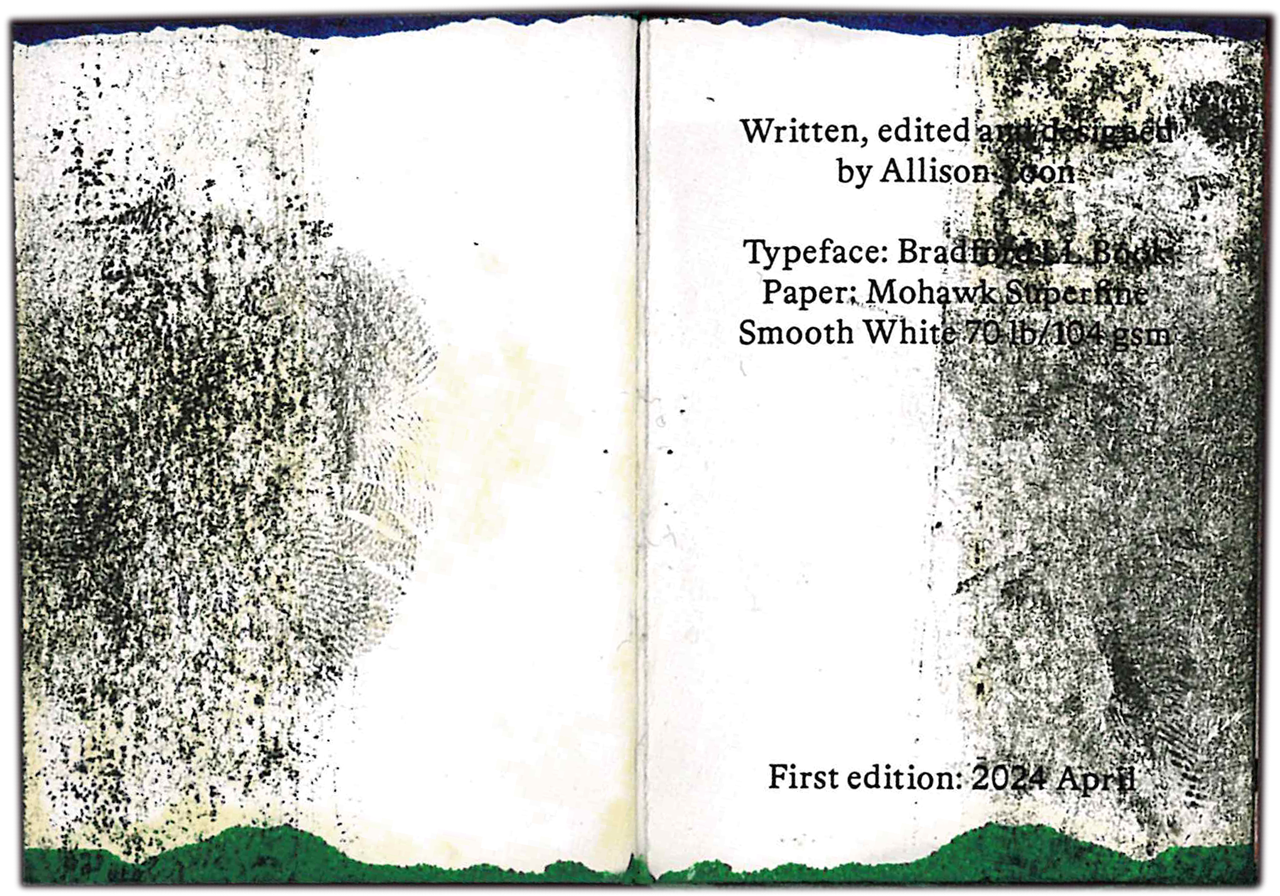 Written, edited and designed
by Allison
Typeface: Bradford LL Book
Paper: Mohawk Superfine
Smooth White 70 lb/104 gsm
First edition: 2024 April